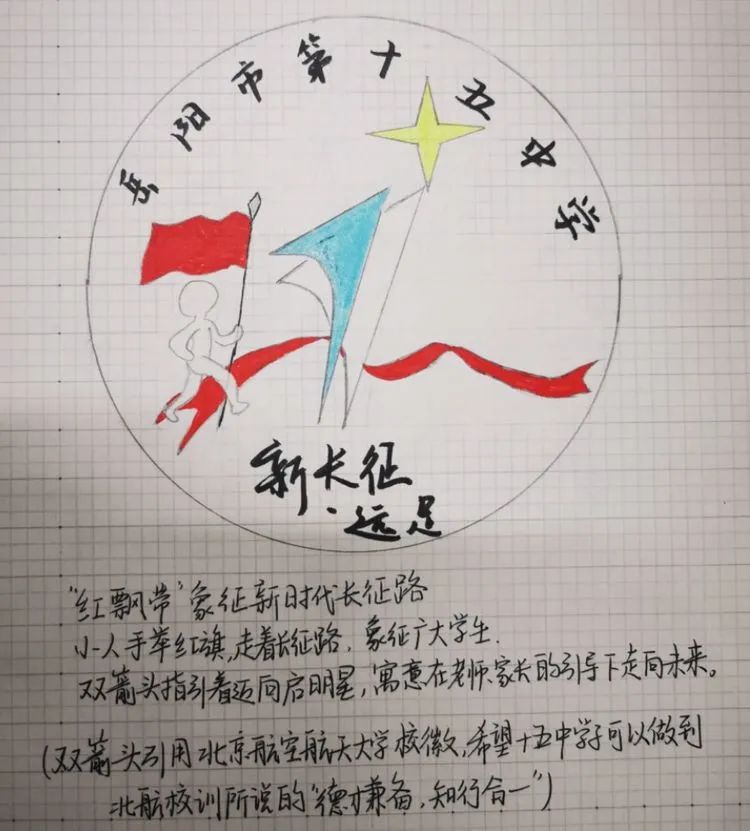 岳阳市第十五中学
新长征
·远足
"红飘带"象征新时代长征路
小人手举红旗,走着长征路,象征广大学生.
双箭头指引着迈向启明星,寓意在老师、家长的引导下走向未来。
(双箭头引用北京航空航天大学校徽,希望十五中学子可以做到
北航校训所说的"德才兼备,知行合一")